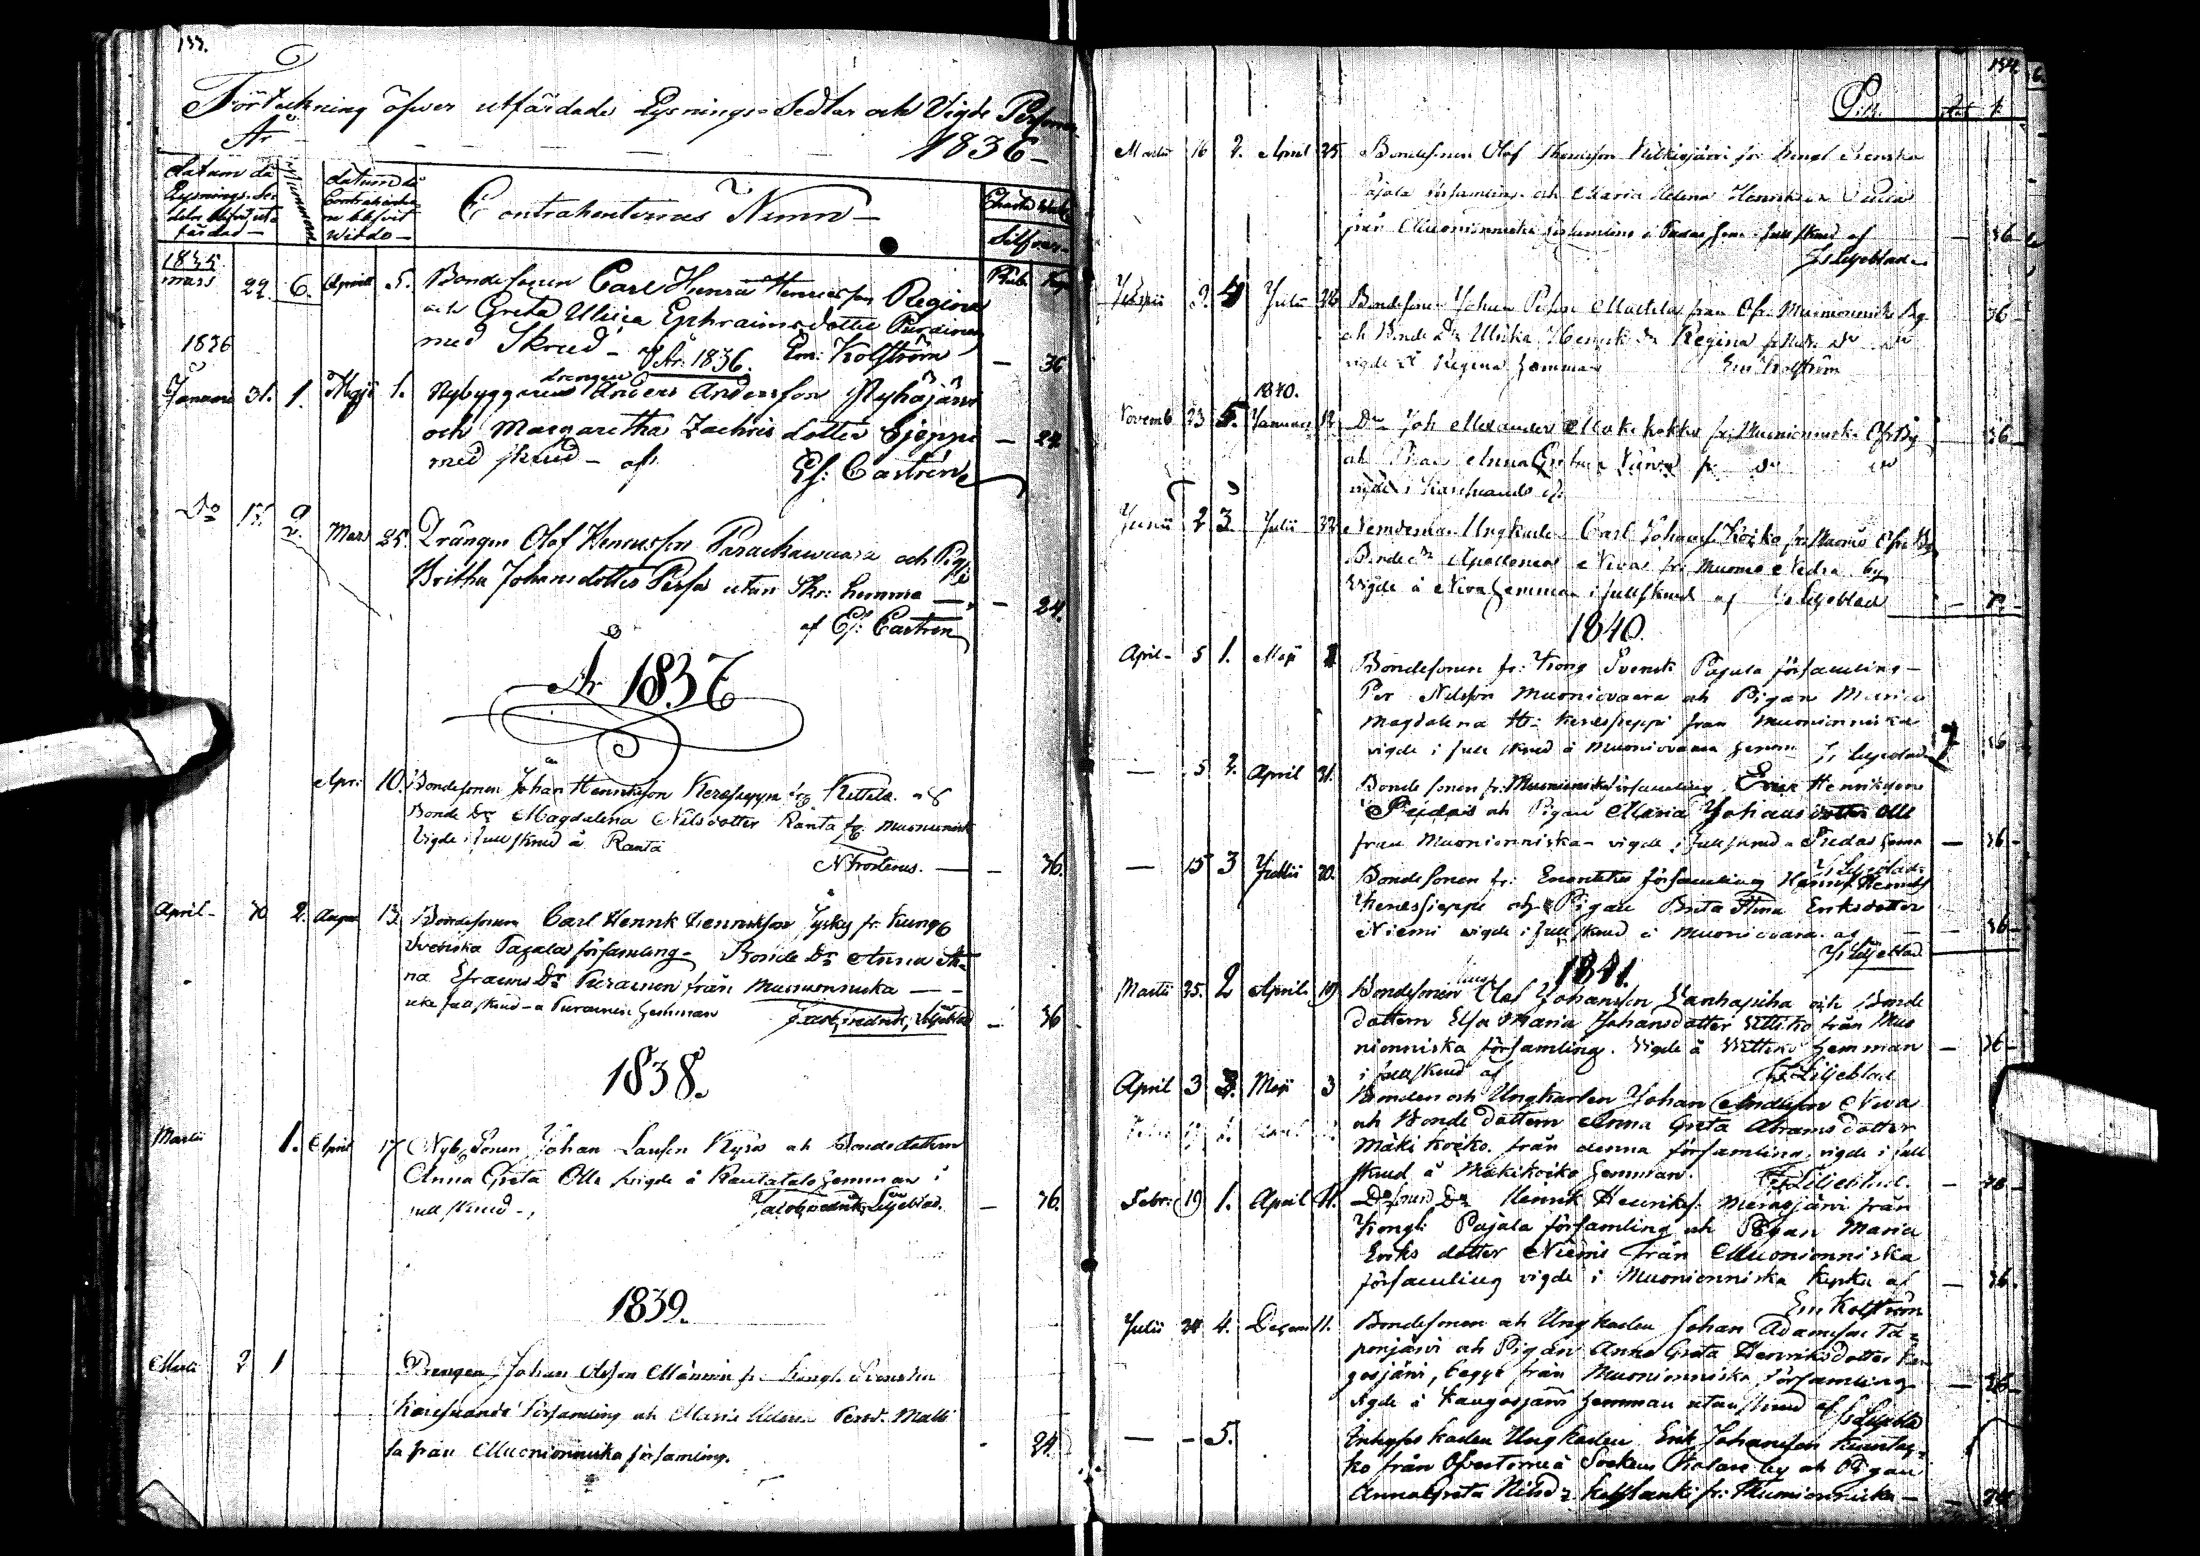 133.
Förteckning öfwer utfärdade Lysnings-Sedlar och Vigde Personer
År - - - - 1836-
datum då Lysnings-Sedeln blifvit utfärdad-
Nummer
datum då Contrahenterne blifvit wigde-
Contrahenternas Namn-
Charta
Silfver-
Rub. Kop.
1835
mars 22. 6. Aprill 5. Bondesonen Carl Henric Henricsson Regina
och Greta Ulrica Ephraimsdotter Purainen
med Skrud- Em: Kolström - 36
V År. 1836.
1836
drengen
Januari 31. 1. Maji 1. Nybyggaren Anders Andersson Nyhäjärvi
och Margaretha Zachris dotter Sieppi - 24.
med skrud- af. Es: Castrén
Do 15. 2. Mars 25. Drängen Olof Henricsson Parackawaara och Pigan
Britha Johansdotter Persa utan Skr: hemma - - 24.
af Es: Castrén
År 1837
Apr: 10. Bondesonen Johan Henriksson Keresieppi frå Kittilä och
Bonde Dr Magdalena Nilsdotter Ranta fr. Muonionisk
Vigde i full skrud å Ranta
N Frosterus. - - 36.
April- 30 2. August 13. Bondesonen Carl Henrik Henriksson Jysky fr. Kungl
Svenska Pajala församling- Bonde Dr Anna Ste-
na Efraims Dr Purainen från Muonionniska - -
i full skrud- å Purainen hemman Jacob Fredrik Liljeblad - 36
1838.
Martii 1. April 17. Nyb. Sonen Johan Larsson Kyrö och Bondedottern
Anna Greta Olli vigde å Rautatalo hemman i
full skrud-, Jacob Fredrik Liljeblad. - 36.
1839.
Martii 2 1 Drengen Johan Olofson Männin fr. Kongl. Svenska
Karesuando Församling och Maria Helena Persd. Matti
la från Muonionniska församling. - 24.
134.
P:n.
Rub. K.
Martii 16 2. April 25. Bondesonen Olof Thomasson Kilkisjärvi fr. Kongl. Svenska
Pajala församling och Maria Helena Henriks Dr Pudas
från Muonionniska församling å Pudas hem. full skrud af - 36
Js Liljeblad
9. 4 Julii 26 Bondesonen Johan Persson Mattila från Öfr. Muonionisk By 36-
och Bonde Dr Ulrika Henriks Dr Regina
vigde å Regina hemman Em Kolström
1840.
Novemb. 23 5. Januari 12 Dr Joh Alexander Mäkikokko fr. Muonionisk Öfr By 36-
och Pigan Anna
vigde i Karesuando af.
Junii 2 3 Julii 22 Nemdeman Ungkarlen Carl Johans Koiko fr. Muonio Öfre By
Bonde Dr Apollonea Niva fr. Muonio Nedra by
Vigde å Niva hemman i full skrud af Js Liljeblad -
1840.
April- 5 1. Maji Bondesonen fr. Kong Svensk Pajala församling-
Per Nilsson Muoniovaara och Pigan Maria
Magdalena Hr: Keresieppi från Muonionniska
vigde i full skrud å Muoniovaara genom Js Liljeblad - 36
- 5 2. April 21. Bondesonen fr. Muonionniska församling Erik Henrikson
Pudas och Pigan Maria Johansdotter Olli
från Muonionniska- vigde i full skrud å Pudas hem. - 36-
Js Liljeblad.
- 15 3 Julii 20. Bondesonen fr. Enontekis församling Henrik Henriks
Keresieppi och Pigan Brita Stina Eriksdotter
Niemi vigde i full skrud å Muoniovara af - 36-
Js Liljeblad
1841.
Martii 25. 2 April. 19 Bondesonen Olof Johansson Lanhapiha och Bonde
dottern Elsa Maria Johansdotter Vittiko från Muo
nionniska församling. Vigde å Vittiko hemman - 36-
i full skrud af Fr Liljeblad
April 3 3. Maji 3 Bonden och Ungkarlen Johan Andersson Niva
och Bonde dottern Anna Greta Abrams dotter
Mäki koiko från denna församling, vigde i full
skrud å Mäkikoiko hemman. Fr Liljeblad. - 36-
Febr: 19 1. April 11. Dr sonen Dr Henrik Henriks. Merasjärvi från
Kongl: Pajala församling och Pigan Maria
Eriks dotter Niemi från Muonionniska
församling vigde i Muonionniska kyrka af - 36.
Em Kolström
Julii 24 4. Decem 11. Bondesonen och Ungkarlen Johan Adamsson Ta-
ponjärvi och Pigan Anna Greta Henriksdotter Kan
gosjärvi, begge från Muonionniska församling - 36-
vigde å Kangosjärvi hemman utan skrud af Js Liljeblad
- - 5. Inhyses karlen Ungkarlen Erik Johansson Kuusta-
ko från Öfvertorneå Sockens Kolare by och Pigan
Anna Greta Nilsdr fr: Muonionniska- - 24